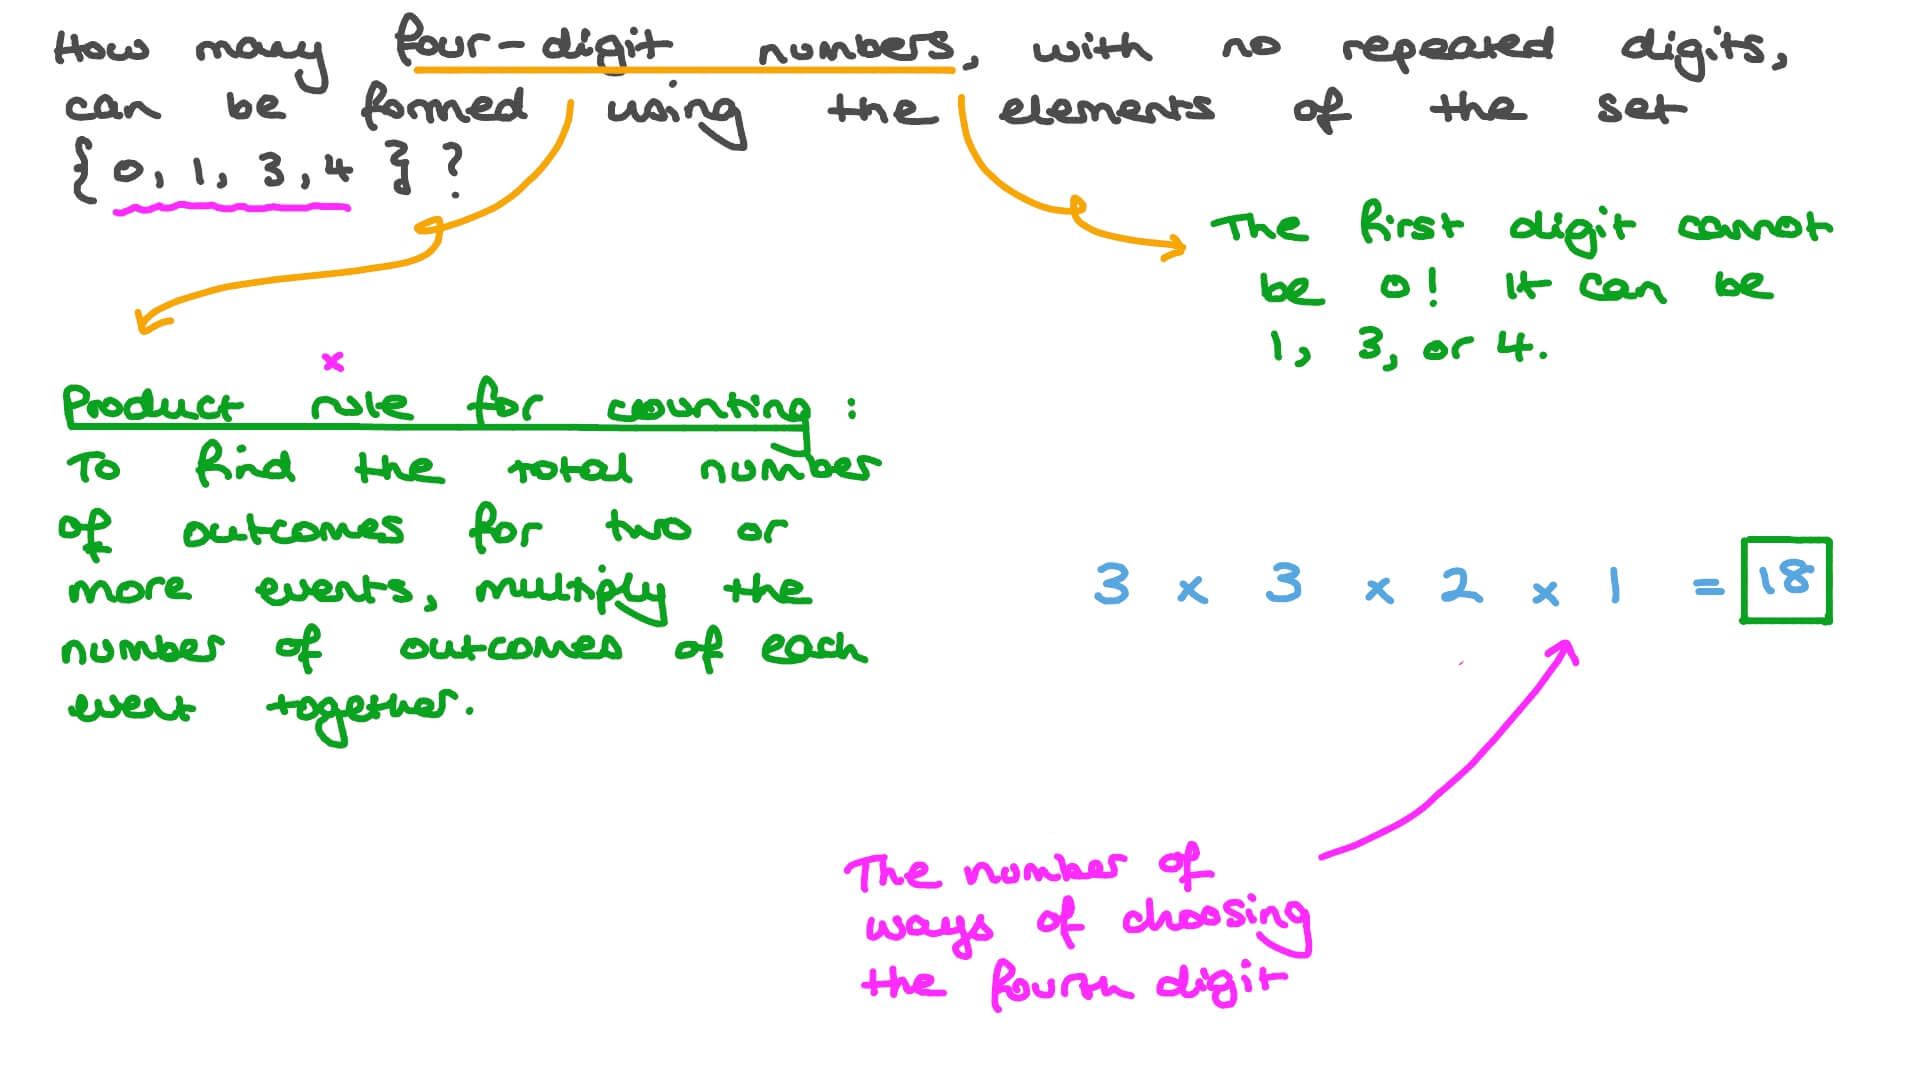 How many four-digit numbers, with no repeated digits,
can be formed using the elements of the set
{ 0, 1, 3, 4 } ?
The first digit cannot
be 0! It can be
1, 3, or 4.
x
Product rule for counting :
To find the total number
of outcomes for two or
more events, multiply the
number of outcomes of each
event together.
3 x 3 x 2 x 1 = 18
The number of
ways of choosing
the fourth digit